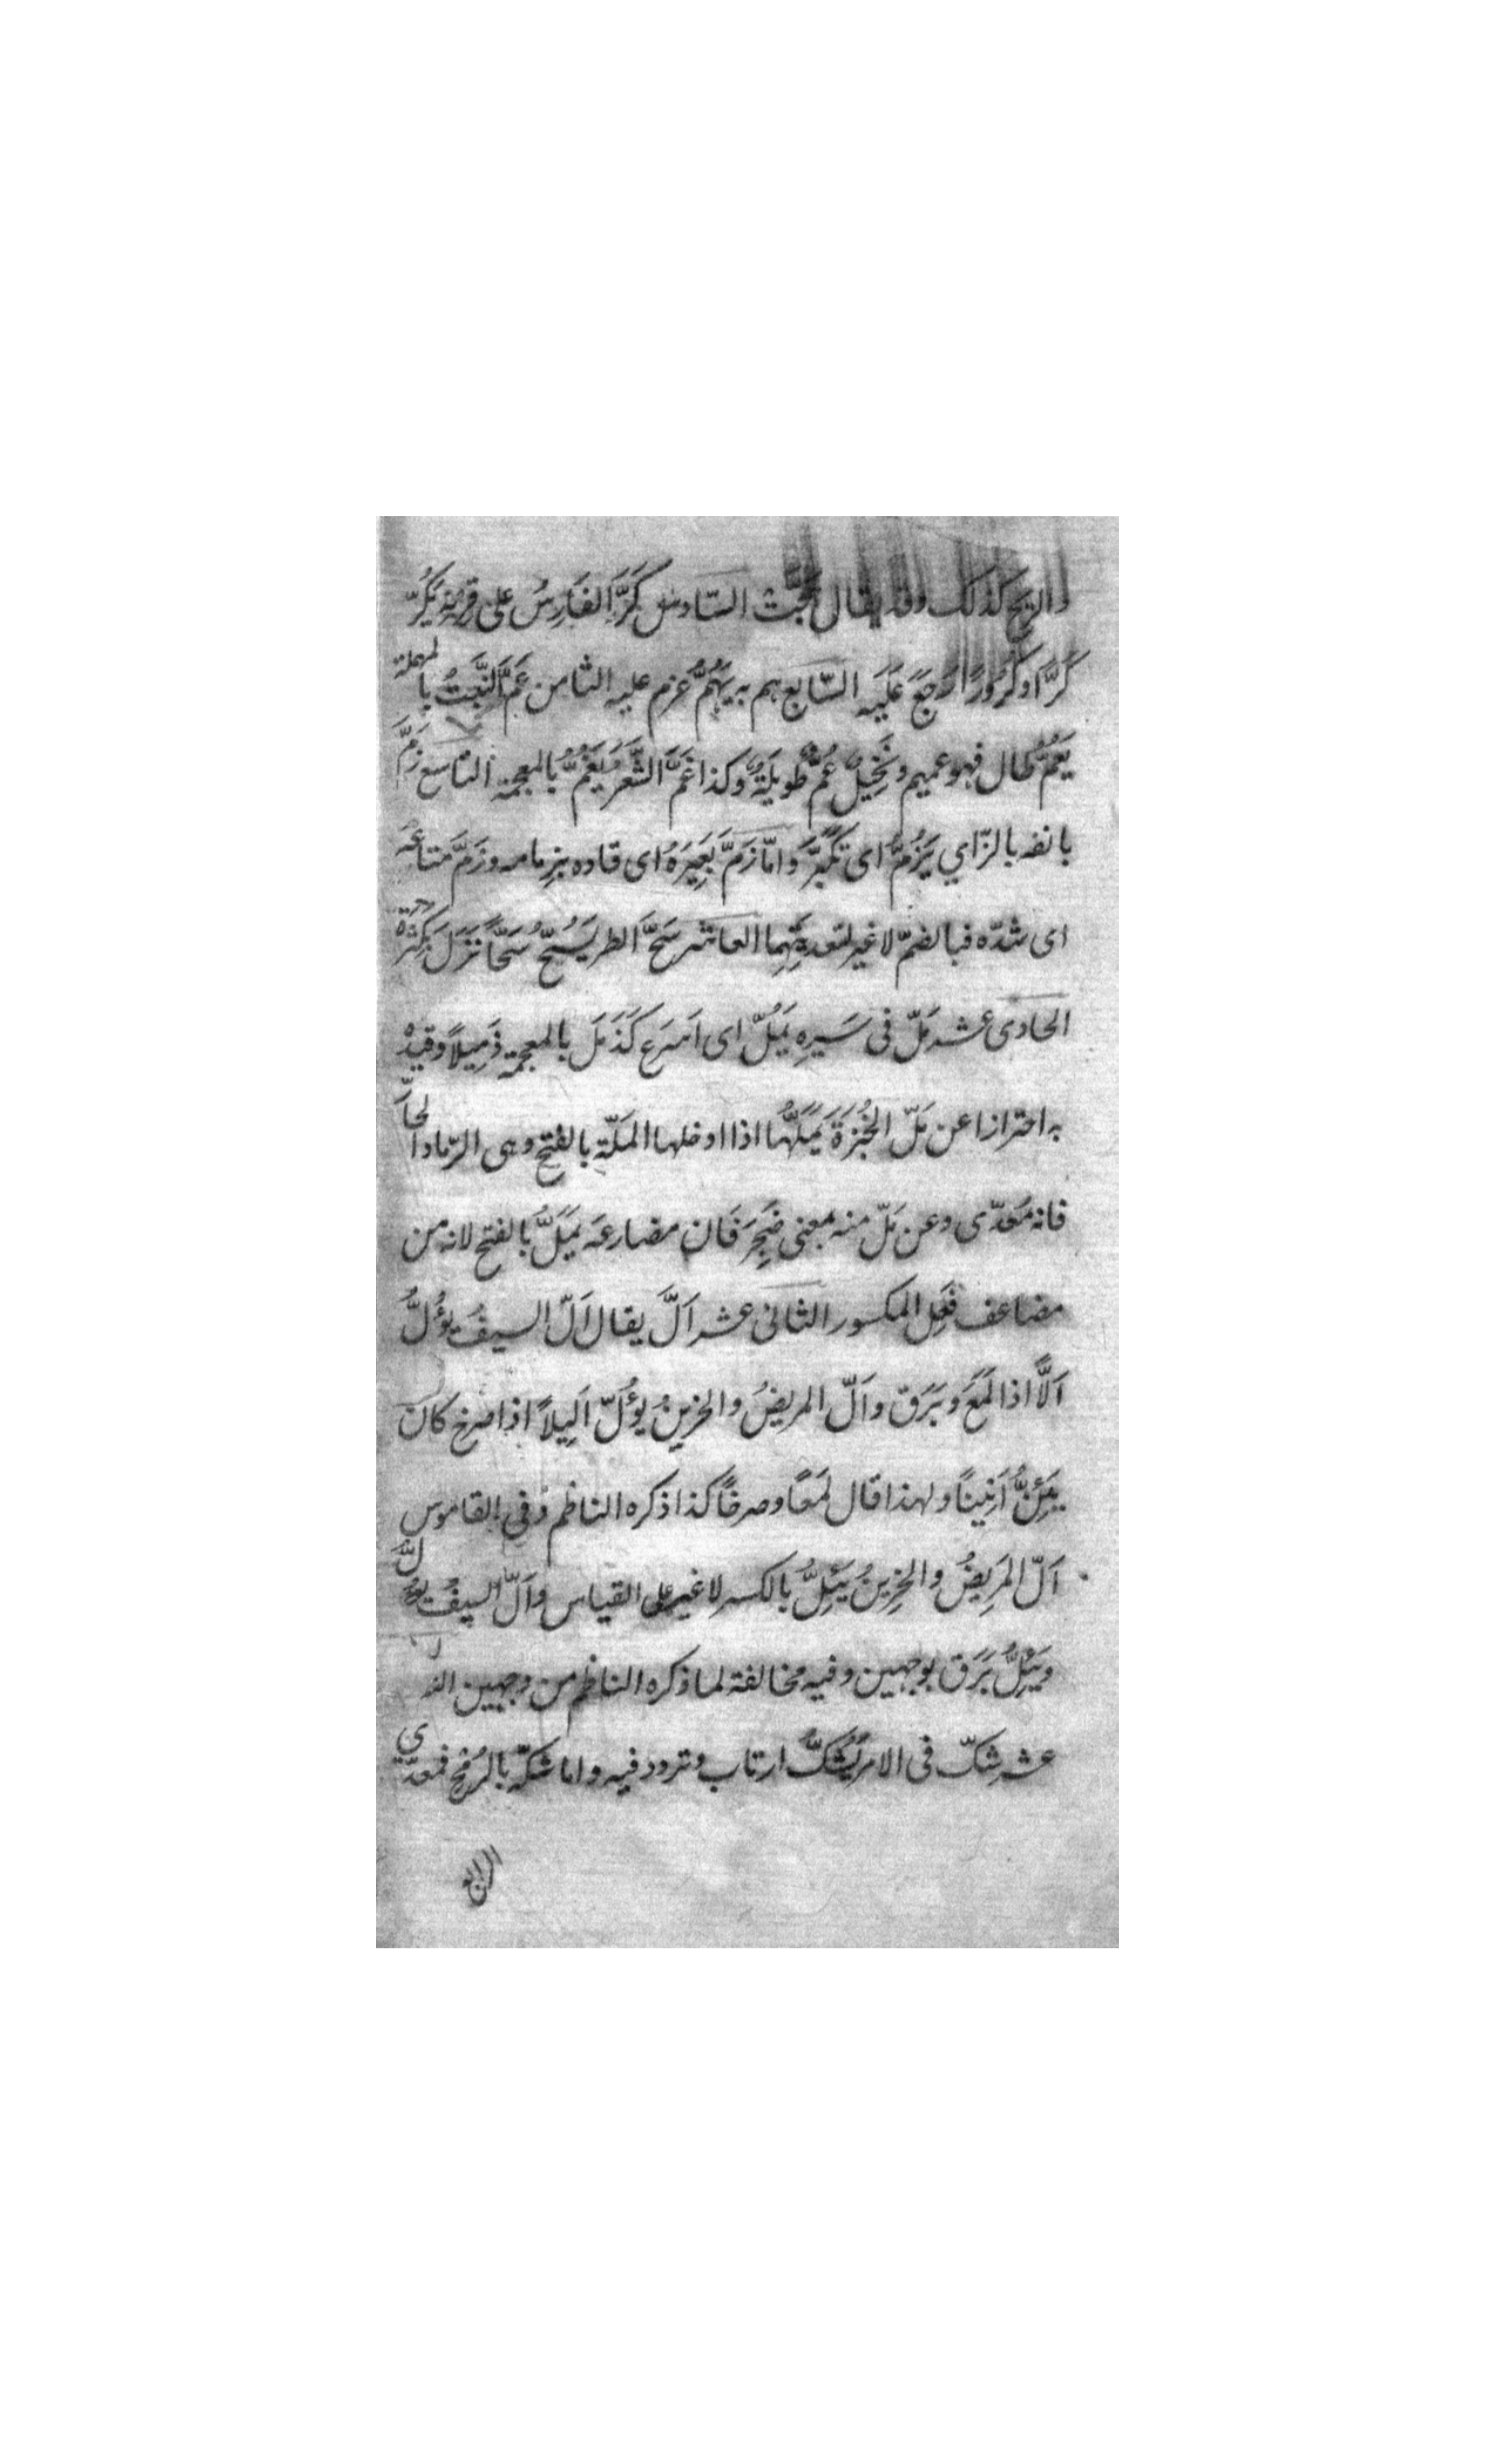 والريح كذلك وقد يقال هبّت السّادس كَرَّ الفَارِسُ على قرنه يَكُرّ
كَرًّا وكُرُورًا رَجَعَ عَلَيه السّابع هم به يَهُمُّ عزم عليه الثامن عَمَّ النَّبتُ بالمهملة
يَعُمُّ طال فهو عميم ونَخِيلٌ عُمٌّ طويلَةٌ وكذا غَمَّ الشَّعَرُ يَغُمُّ بالمعجمة التاسع زَمَّ
بانفه بالزّاي يَزُمُّ اى تَكَبَّرَ وامّا زَمَّ بَعِيرَهُ اى قاده بزمامه وزَمَّ متاعَهُ
اى شدّه فبالضمّ لا غير لتعديتِهِما العاشر سَحَّ المطر يَسُحُّ سَحًّا نَزَلَ بكثرَةٍ
الحادى عشر مَلّ فى سَيرِهِ يَمُلّ اى اَسرَع كَذَمَلَ بالمعجمة ذَمِيلاً وقيدْ
به احترازا عن مَلّ الخُبْزَةَ يَمُلُّهَا اذا ادخلها المَلّة بالفتح وهى الرّماد الحارّ
فانه مَعَدّى وعن مَلّ منه بمعنى ضَجِرَ فَان مضارعَه يَمَلُّ بالفتح لانه من
مضاعف فَعِل المكسور الثانى عشر اَلَّ يقال اَلّ السيفُ يؤُلُّ
اَلًّا اذا لَمَعَ وبَرَق واَلّ المريضُ والحزينُ يؤُلّ اَلِيلاً اذا صرخ كان
يَئِنُّ اَنِينًا ولهذا قال لَمَعًا وصرخًا كذا ذكره الناظم وفى القاموس
اَلّ المَرِيضُ والحزِينُ يَئِلُّ بالكسر لا غير على القياس واَلّ السيفُ يؤُلُّ
ويَئِلُّ بَرَق بوجهين وفيه مخالفة لما ذكره الناظم من وجهين الثا
عشر شكّ فى الامر يَشُكُّ ارتاب وتردد فيه واما شكّه بالرُمْحِ فمعدّي
الرابع